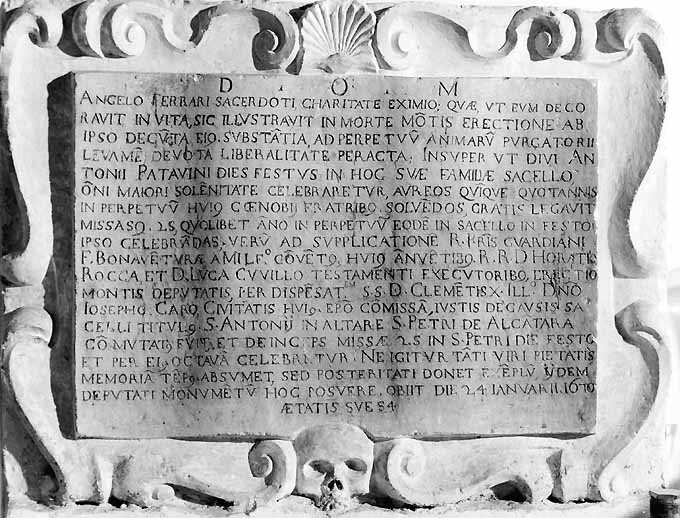 D . O . M
ANGELO FERRARI SACERDOTI CHARITATE EXIMIO; QVÆ, VT EVM DECO
RAVIT IN VITA, SIC ILLVSTRAVIT IN MORTE MŌTIS ERECTIONE AB
IPSO DEQVĀTA EIO. SVBSTĀTIA, AD PERPETVV̄ ANIMARV̄ PVRGATORII
LEVAMĒ DEVOTA LIBERALITATE PERACTA; INSVPER VT DIVI AN
TONII PATAVINI DIES FESTVS IN HOC SVÆ FAMILIÆ SACELLO
ŌNI MAIORI SOLĒNITATE CELEBRARETVR, AVREOS QVIQVE QVOTANNIS
IN PERPETVV̄ HVI9 CŒNOBII FRATRIB9. SOLVĒDOS, GRATIS LEGAVIT
MISSAS9. 25 QVOLIBET ĀNO IN PERPETVV̄ EODĒ IN SACELLO IN FESTO
IPSO CELEBRĀDAS; VERV̄ AD SVPPLICATIONĒ R. FRĪS GVARDIANI
F. BONAVĒTVRÆ A MILF.º CŌVĒT9. HVI9 ANVĒTI89. R. R. D HORATII
ROCCA, ET D. LVCA CVVILLO TESTAMENTI EXECVTORIB9, ERECTIO
MONTIS DEPVTATIS, PER DISPĒSAT. S. S. D. CLEMĒTIS X. ILL. DÑO
IOSEPHO CARO CIVITATIS HVI9. EPŌ CŌMISSĀ, IVSTIS DE CAVSIS SA
CELLI TITVL9 S. ANTONII IN ALTARE S. PETRI DE ALCATARA
CŌMVTAT9 FVIT, ET DEINCEPS MISSÆ 25 IN S. PETRI DIE FESTO
ET PER EI9 OCTAVĀ CELEBRĀTVR. NE IGITVR TĀTI VIRI PIETATIS
MEMORIĀ TĒP9. ABSVMET, SED POSTERITATI DONET EXĒPLV̄ IJDEM
DEPVTATI MONVMĒTV̄ HOC POSVERE. OBIIT DIE 24 IANVARII 1670
ÆTATIS SVE 84